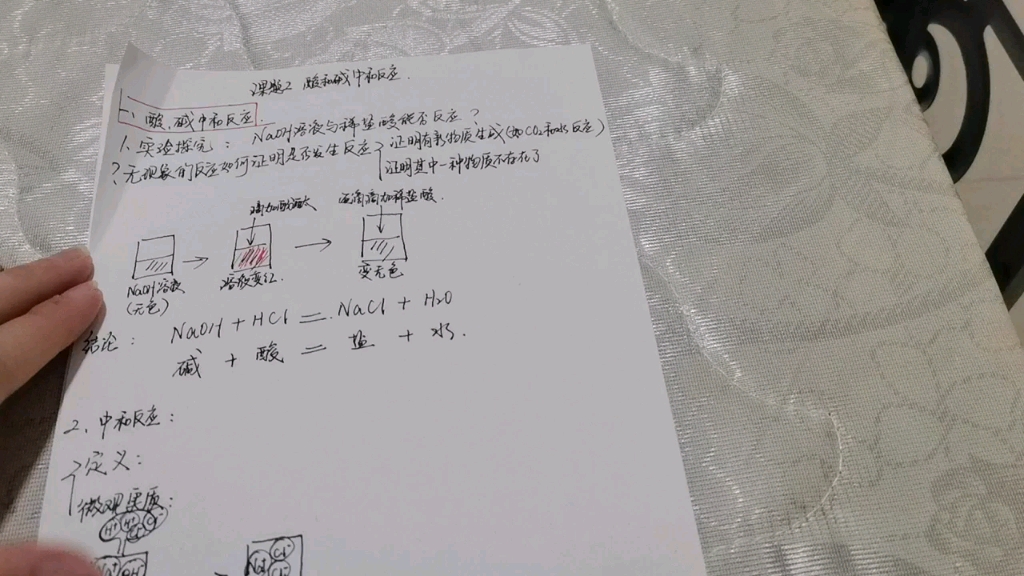 课题2 酸和碱中和反应.
一、酸、碱中和反应
1. 实验探究: NaOH溶液与稀盐酸能否反应?
?无现象的反应如何证明是否发生反应
证明有新物质生成(如CO2和水反应)
证明其中一种物质不存在了
滴加酚酞
逐滴滴加稀盐酸.
NaOH溶液
(无色)
溶液变红.
变无色
结论: NaOH + HCl = NaCl + H2O
碱 + 酸 = 盐 + 水.
2、中和反应:
定义:
微观实质:
H+ Cl-
Na+ OH-
Na+ Cl-